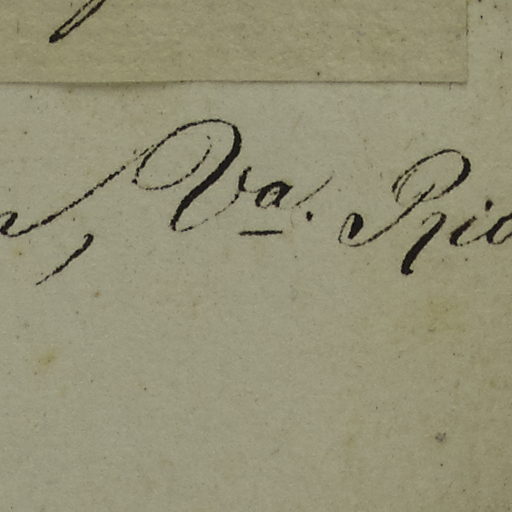 , Va. Rio